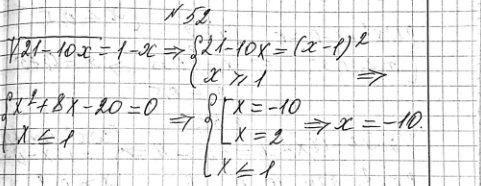 №52.
√(21-10x) = 1-x ⇒ { 21-10x = (x-1)²
{ x ⩾ 1 ⇒
{ x²+8x-20=0 ⇒ { [ x=-10
[ x=2 ⇒ x=-10.
{ x ≤ 1 { x ≤ 1